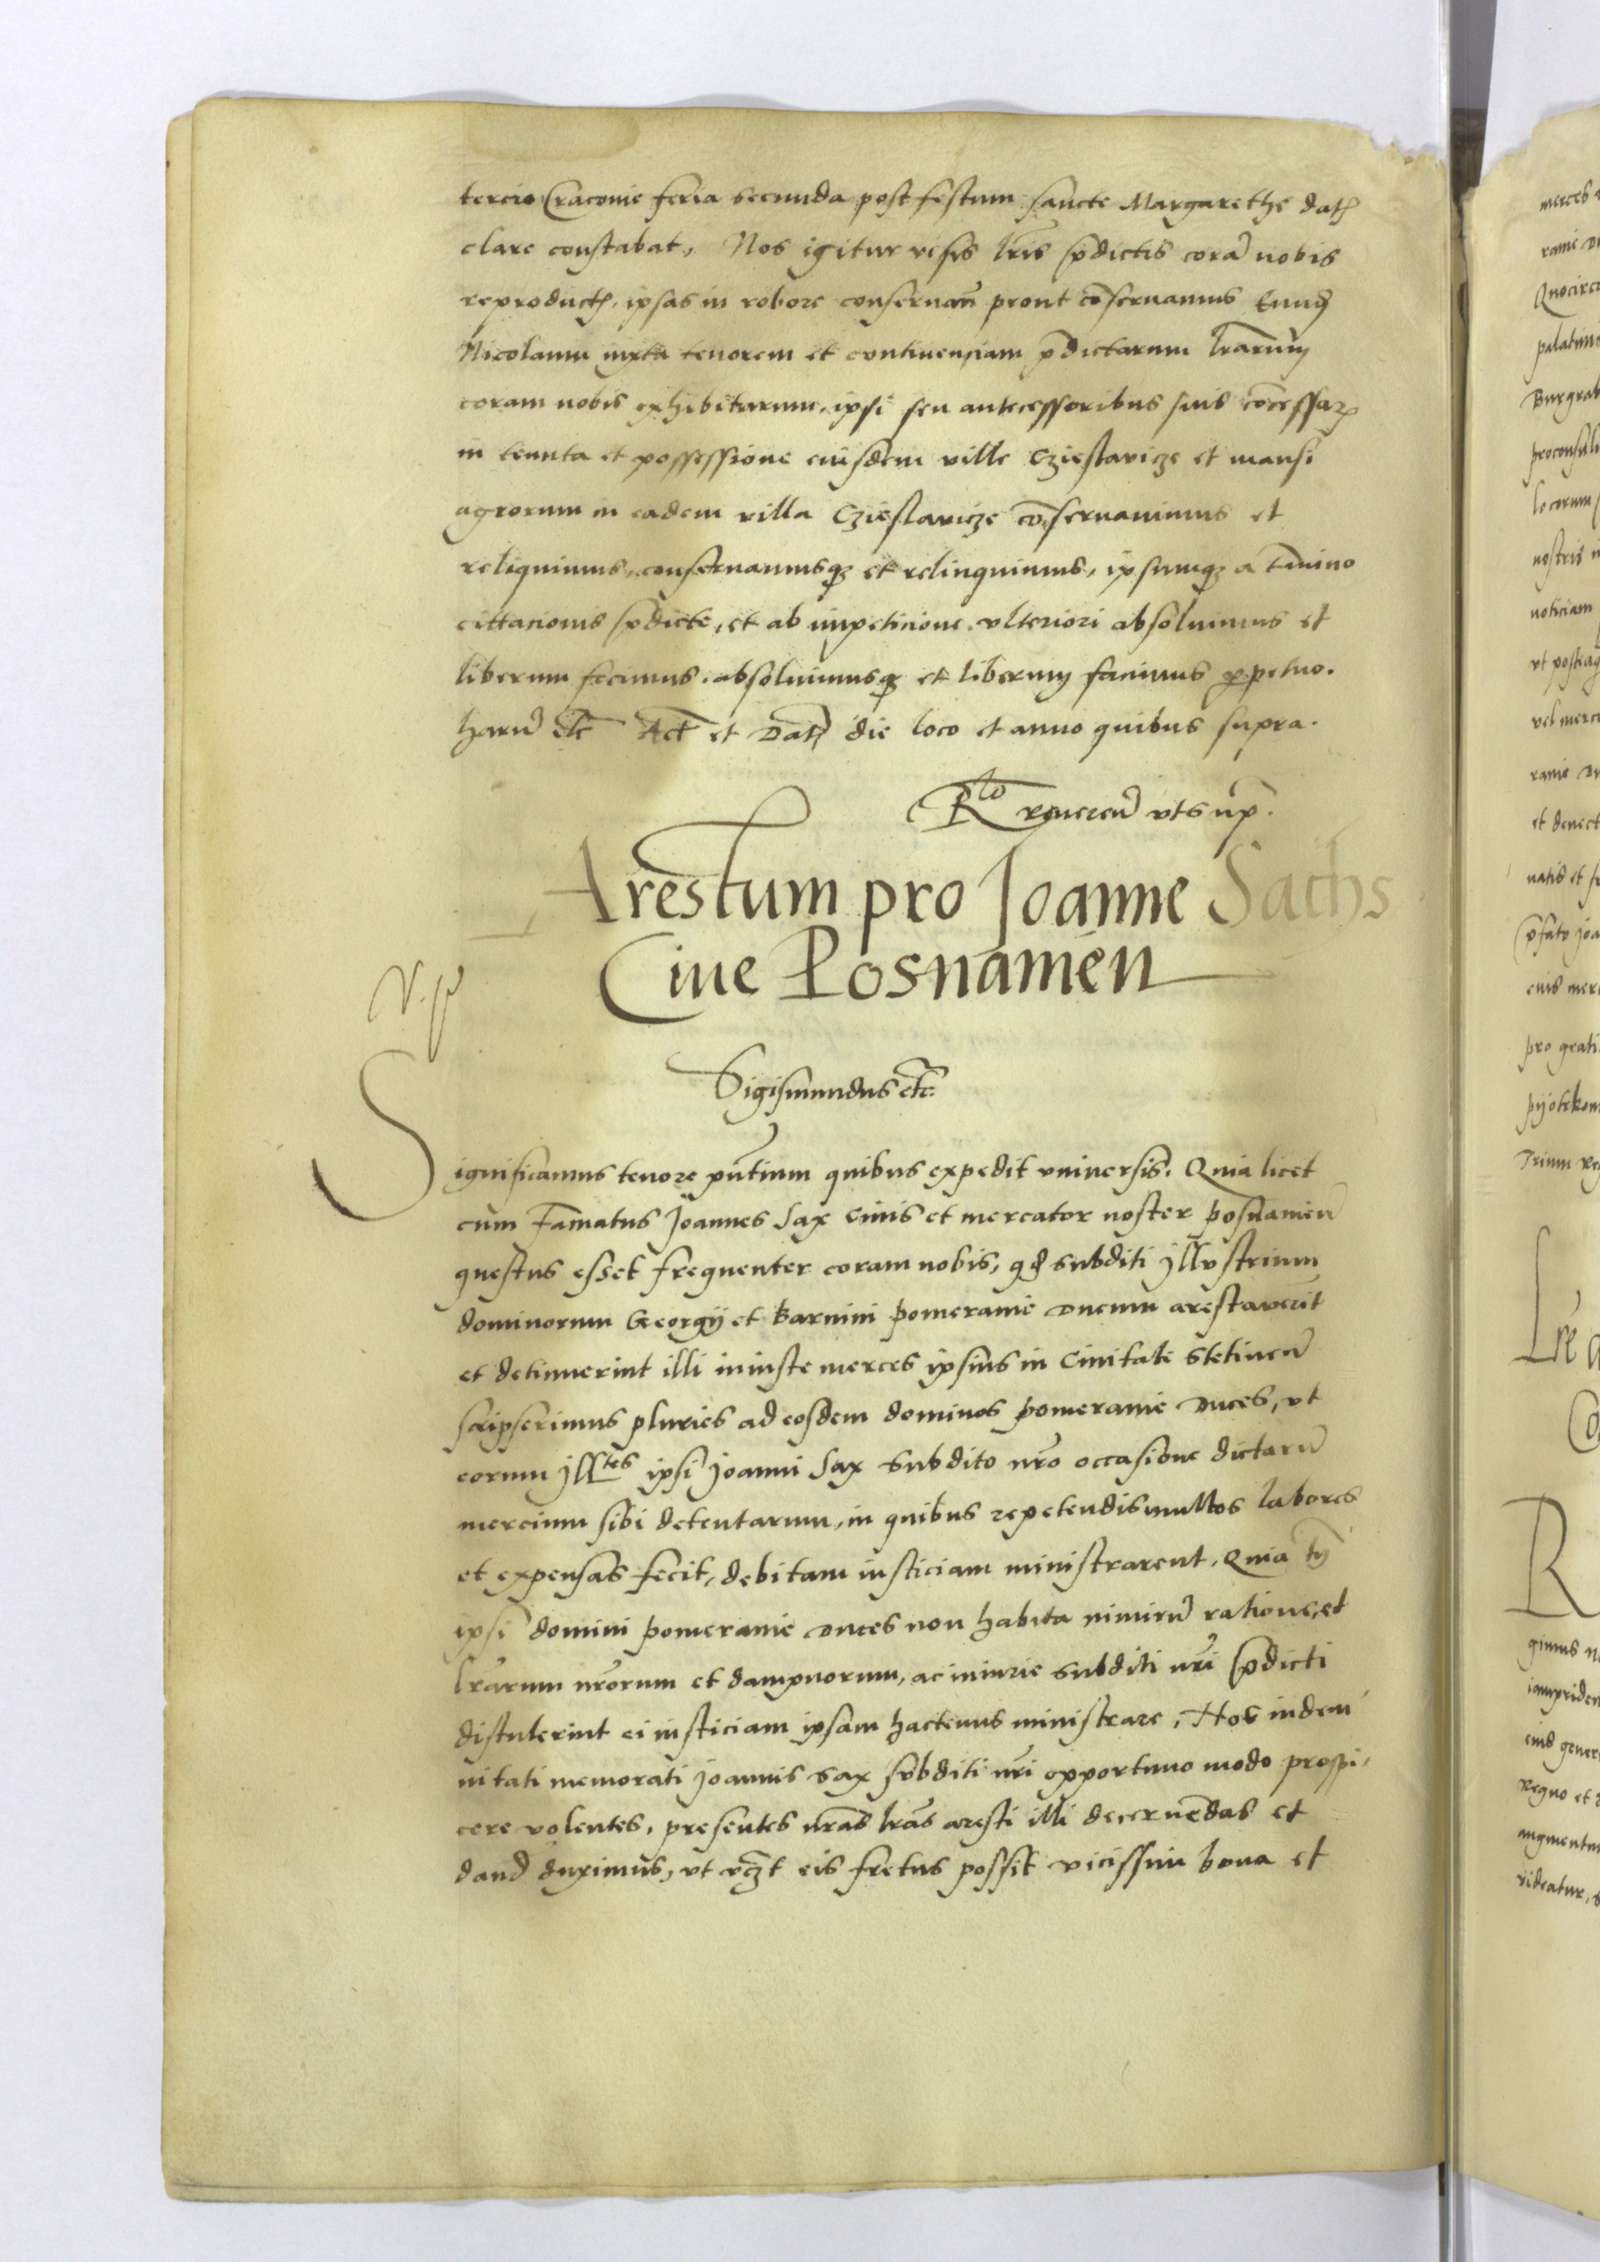 tercio Cracovie feria secunda post festum sancte Margarethe dat
clare constabat, Nos igitur visis lris pdictis cora nobis
reproduct, ipsas in robore conservan prout conservamus Eund
Nicolaum iuxta tenorem et continenciam pdictarum lrarum
coram nobis exhibitarum, ipsi seu antecessoribus suis cocessar
in tenuta et possessione eiusdem ville Cziestavicze et mansi
agrorum in eadem villa Cziestavicze coservavimus et
reliquimus, conservamusq et relinquimus, ipsumq a tmino
cittacionis pdicte, et ab impeticione ulteriori absolvimus et
liberum fecimus, absolvimusq et liberum facimus ppetuo.
haru etc Act et Dat die loco et anno quibus supra.
Rlo reveren ut sup.
Arestum pro Joanne Sachs
Cive Posnamen
Sigismundus etc
Significamus tenore pntium quibus expedit universis. Quia licet
cum Famatus Joannes Sax civis et mercator noster posnamien
questus esset frequenter coram nobis, qd subditi Illustrium
dominorum Georgij et Barnini pomeranie Ducum arestaverit
et detinuerint illi iniuste merces ipsius in civitate Stetinen
scripserimus pluries ad eosdem dominos pomeranie Duces, ut
eorum Illtes ipsi Joanni Sax subdito nro occasione dictaru
mercium sibi detentarum, in quibus repetendis multos labores
et expensas fecit, debitam iusticiam ministrarent, Quia tn
ipsi domini pomeranie Duces non habita nimiru ratione, et
lrarum nrorum et dampnorum, ac iniurie subditi nri pdicti
distulerint ei iusticiam ipsam hactenus ministrare, Nos indem
nitati memorati Joannis Sax subditi nri opportuno modo prospi,
cere volentes, presentes nras lras aresti illi decernedas et
dand duximus, ut vczt eis fretus possit vicissim bona et